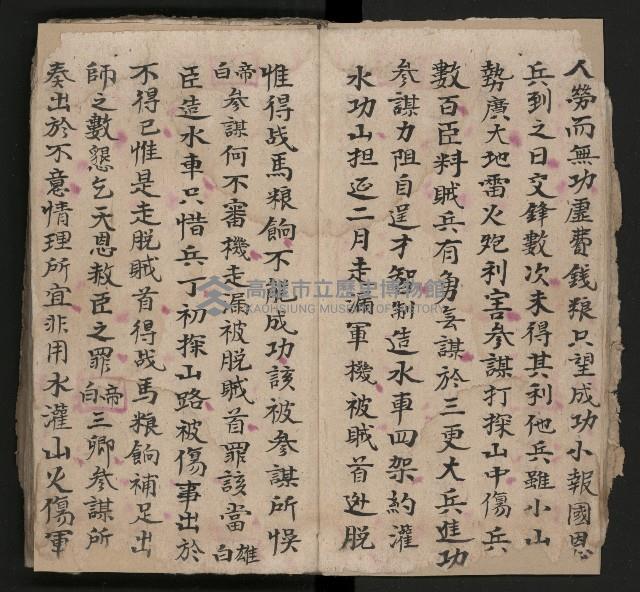 人勞而無功虛費錢粮只望成功小報國恩
兵到之日交鋒數次未得其利他兵雖小山
勢廣大地雷火炮利害參謀打探山中傷兵
數百臣料賊兵有勇無謀於三更大兵進功
參謀力阻自逞才智制造水車四架約灌
水功山担延二月走漏軍機被賊首逃脫
惟得战馬粮餉不能成功該被參謀所悞
帝白參謀何不審機走漏被脫賊首罪該當雄白
臣造水車只惜兵丁初探山路被傷事出於
不得已惟是走脫賊首得战馬粮餉補足出
師之數懇乞天恩赦臣之罪帝白三卿參謀所
奏出於不意情理所宜非用水灌山火傷軍
高雄市立歷史博物館
KAOHSIUNG MUSEUM OF HISTORY